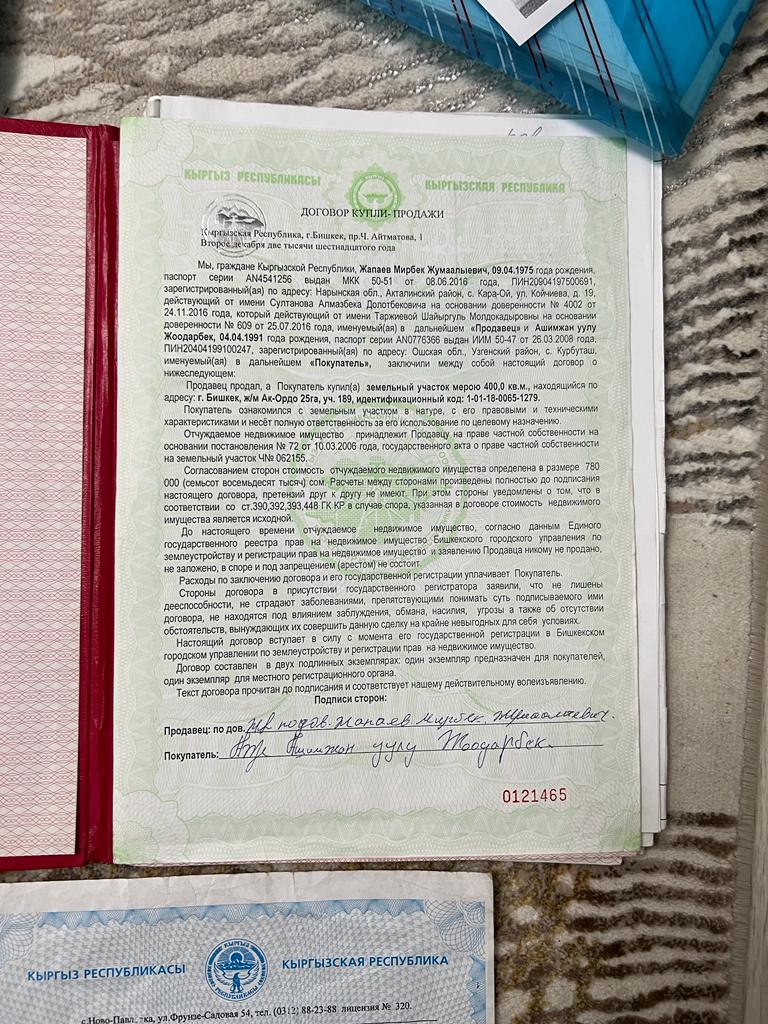 КЫРГЫЗ РЕСПУБЛИКАСЫ КЫРГЫЗСКАЯ РЕСПУБЛИКА
ДОГОВОР КУПЛИ- ПРОДАЖИ
Кыргызская Республика, г.Бишкек, пр.Ч. Айтматова, 1
Второе декабря две тысячи шестнадцатого года
Мы, граждане Кыргызской Республики, Жапаев Мирбек Жумаалыевич, 09.04.1975 года рождения,
паспорт серии AN4541256 выдан МКК 50-51 от 08.06.2016 года, ПИН20904197500691,
зарегистрированный(ая) по адресу: Нарынская обл., Акталинский район, с. Кара-Ой, ул. Койчиева, д. 19,
действующий от имени Султанова Алмазбека Долотбековича на основании доверенности № 4002 от
24.11.2016 года, который действующий от имени Таржиевой Шайыргуль Молдокадыровны на основании
доверенности № 609 от 25.07.2016 года, именуемый(ая) в дальнейшем «Продавец» и Ашимжан уулу
Жоодарбек, 04.04.1991 года рождения, паспорт серии AN0776366 выдан ИИМ 50-47 от 26.03.2008 года,
ПИН20404199100247, зарегистрированный(ая) по адресу: Ошская обл., Узгенский район, с. Курбуташ,
именуемый(ая) в дальнейшем «Покупатель», заключили между собой настоящий договор о
нижеследующем:
Продавец продал, а Покупатель купил(а) земельный участок мерою 400,0 кв.м., находящийся по
адресу: г. Бишкек, ж/м Ак-Ордо 25га, уч. 189, идентификационный код: 1-01-18-0065-1279.
Покупатель ознакомился с земельным участком в натуре, с его правовыми и техническими
характеристиками и несёт полную ответственность за его использование по целевому назначению.
Отчуждаемое недвижимое имущество принадлежит Продавцу на праве частной собственности на
основании постановления № 72 от 10.03.2006 года, государственного акта о праве частной собственности
на земельный участок Ч№ 062155.
Согласованием сторон стоимость отчуждаемого недвижимого имущества определена в размере 780
000 (семьсот восемьдесят тысяч) сом. Расчеты между сторонами произведены полностью до подписания
настоящего договора, претензий друг к другу не имеют. При этом стороны уведомлены о том, что в
соответствии со ст.390,392,393,448 ГК КР в случае спора, указанная в договоре стоимость недвижимого
имущества является исходной.
До настоящего времени отчуждаемое недвижимое имущество, согласно данным Единого
государственного реестра прав на недвижимое имущество Бишкекского городского управления по
землеустройству и регистрации прав на недвижимое имущество и заявлению Продавца никому не продано,
не заложено, в споре и под запрещением (арестом) не состоит.
Расходы по заключению договора и его государственной регистрации уплачивает Покупатель.
Стороны договора в присутствии государственного регистратора заявили, что не лишены
дееспособности, не страдают заболеваниями, препятствующими понимать суть подписываемого ими
договора, не находятся под влиянием заблуждения, обмана, насилия, угрозы а также об отсутствии
обстоятельств, вынуждающих их совершить данную сделку на крайне невыгодных для себя условиях.
Настоящий договор вступает в силу с момента его государственной регистрации в Бишкекском
городском управлении по землеустройству и регистрации прав на недвижимое имущество.
Договор составлен в двух подлинных экземплярах: один экземпляр предназначен для покупателей,
один экземпляр для местного регистрационного органа.
Текст договора прочитан до подписания и соответствует нашему действительному волеизъявлению.
Подписи сторон:
Продавец: по дов. Жапаев Мирбек Жумаалиевич.
Покупатель: Ашимжон уулу Жоодарбек.
0121465
КЫРГЫЗ РЕСПУБЛИКАСЫ КЫРГЫЗСКАЯ РЕСПУБЛИКА
КЫРГЫЗ РЕСПУБЛИКАСЫ
ул.Фрунзе-Садовая 54, тел. (0312) 88-23-88 лицензия № 320.